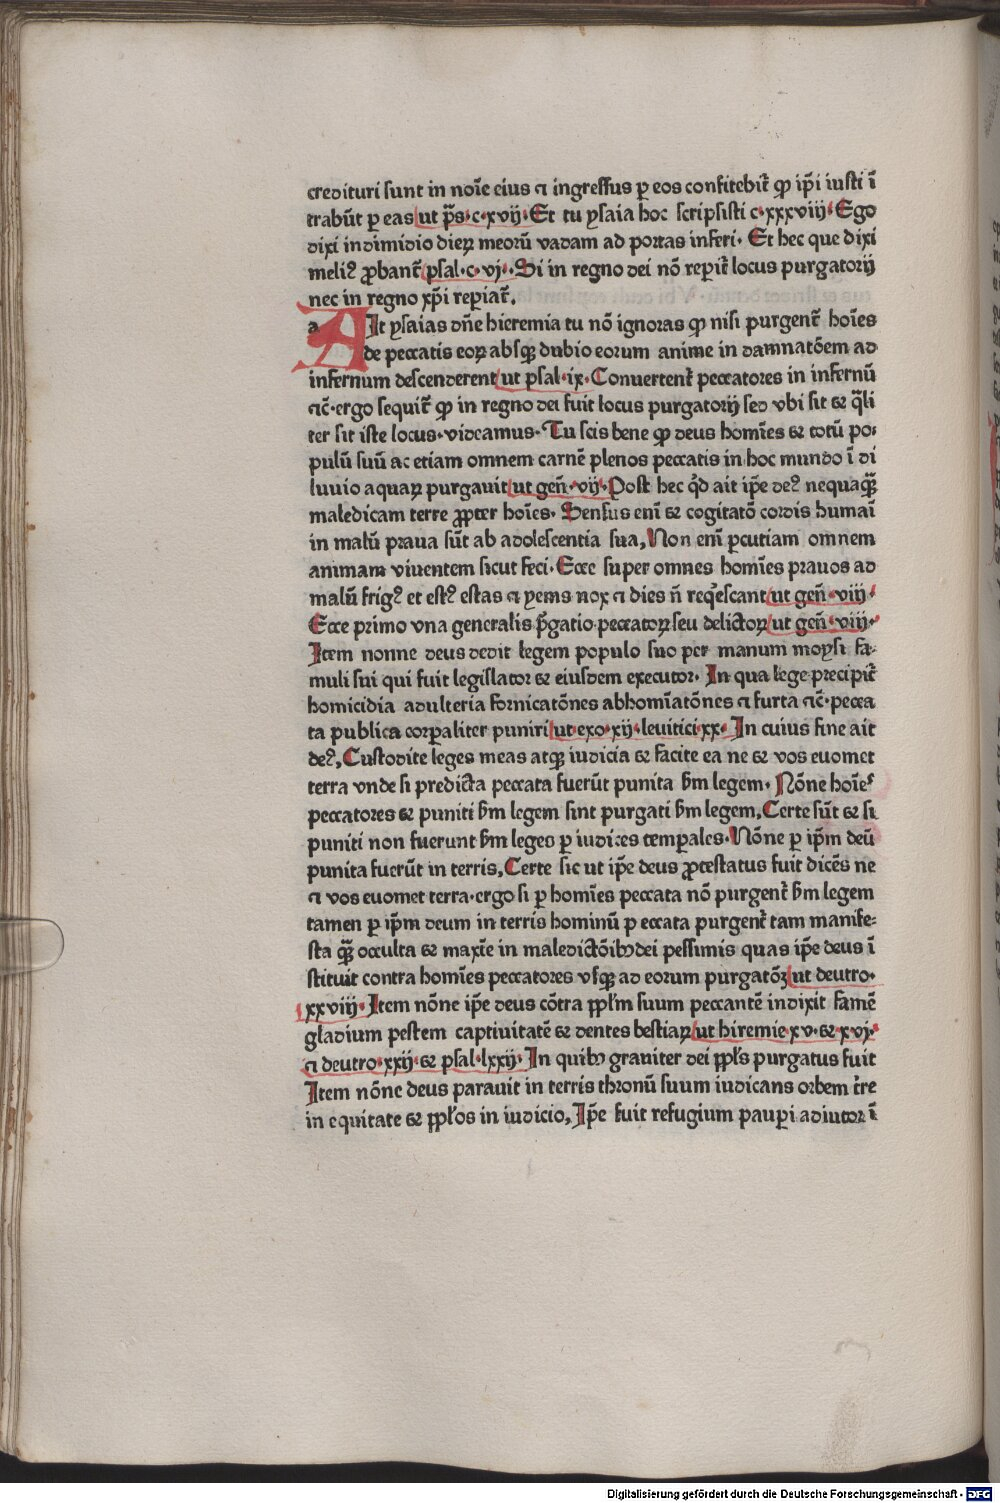 credituri sunt in noīe eius ⁊ ingressus ꝑ eos confitebit᷑ ꝙ ip̄i iusti ī
trabūt ꝑ eas ut p̄s·c·xvij·Et tu ysaia hoc scripsisti c·xxxviij·Ego
dixi in dimidio dieꝝ meorū vadam ad portas inferi· Et hec que dixi
meliꝰ ꝓbant᷑ psal·c·vj·Si in regno dei nō reperit᷑ locus purgatorij
nec in regno xp̄i repiat᷑.
a AIt ysaias dn̄e hieremia tu nō ignoras ꝙ nisi purgent᷑ hoīes
de peccatis eoꝝ absqꝫ dubio eorum anime in damnatōem ad
infernum descenderent ut psal·ix·Convertent᷑ peccatores in infernū
⁊c̄·ergo sequit᷑ ꝙ in regno dei fuit locus purgatorij sed vbi sit & q̄li
ter sit iste locus·videamus·Tu scis bene ꝙ deus homīes & totū po⸗
pulū suū ac etiam omnem carnē plenos peccatis in hoc mundo ī di
luvio aquaꝝ purgavit ut gen̄·vij·Post hec qd̄ ait ip̄e deꝰ nequaqꝫ̄
maledicam terre ꝓpter hoīes· Sensus enī & cogitatō cordis humaī
in malū praua sūt ab adolescentia sua, Non enī ꝑcutiam omnem
animam viuentem sicut feci·Ecce super omnes homīes prauos ad
malū frigꝰ et estꝰ estas ⁊ yems nox ⁊ dies n̄ reqͥescant ut gen̄·viij·
Ecce primo vna generalis p̄gatio peccatoꝝ seu delictoꝝ ut gen̄·viij·
Item nonne deus dedit legem populo suo per manum moysi fa⸗
muli sui qui fuit legislator & eiusdem executor· In qua lege precipit᷑
homicidia adulteria fornicatōnes abhomīatōnes ⁊ furta ⁊c̄·pecca
ta publica corꝑaliter puniri ut exo·xij·levitici·xx· In cuius fine ait
deꝰ, Custodite leges meas atqꝫ iudicia & facite ea ne & vos euomet
terra vnde si predicta peccata fuerūt punita ẜm legem· Nōne hoīes
peccatores & puniti ẜm legem sint purgati ẜm legem, Certe sūt & si
puniti non fuerunt ẜm leges ꝑ iudices temꝑales·Nōne ꝑ ip̄m deū
punita fuerūt in terris, Certe sic ut ip̄e deus ꝓtestatus fuit dicēs ne
⁊ vos euomet terra·ergo si ꝑ homīes peccata nō purgent᷑ ẜm legem
tamen ꝑ ip̄m deum in terris hominū p eccata purgent᷑ tam manife⸗
sta qꝫ̄ occulta & maxīe in maledictōibꝫ dei pessimis quas ip̄e deus ī
stituit contra homīes peccatores vsqꝫ ad eorum purgatōꝫ ut deutro·
xxviij· Item nōne ip̄e deus cōtra ppl̄m suum peccantē indixit famē
gladium pestem captiuitatē & dentes bestiaꝝ ut hiremie xv·& xvj·
⁊ deutro·xxij·& psal·lxxij· In quibꝫ grauiter dei ppl̄s purgatus fuit
Item nōne deus parauit in terris thronū suum iudicans orbem t᷑re
in equitate & ppl̄os in iudicio, Ip̄e fuit refugium pauꝑi adiutor ī
Digitalisierung gefördert durch die Deutsche Forschungsgemeinschaft - DFG